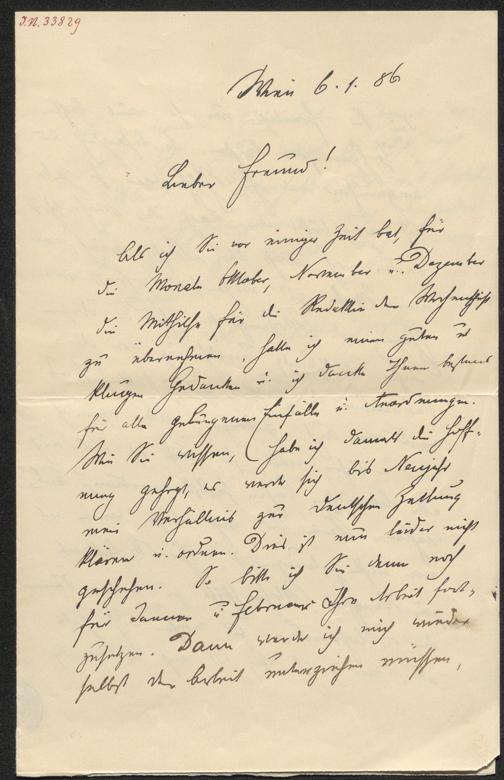 I.N. 33829
Wien 6. 1. 86
Lieber Freund!
Als ich Sie vor einiger Zeit bat, für
die Monate Oktober, November u. Dezember
die Mithilfe für die Redaktion der Wochenschrift
zu übernehmen, hatte ich einen guten u
klugen Gedanken u. ich danke Ihnen bestens
für alle gelungenen Einfälle u. Anordnungen.
Wie Sie wissen, habe ich damals die Hoff-
nung gehegt, es werde sich bis Neujahr
mein Verhältnis zur Deutschen Zeitung
klären u. ordnen. Dies ist nun leider nicht
geschehen. So bitte ich Sie denn noch
für Januar u Februar Ihre Arbeit fort-
zusetzen. Dann werde ich mich wieder
selbst der Arbeit unterziehen müssen,